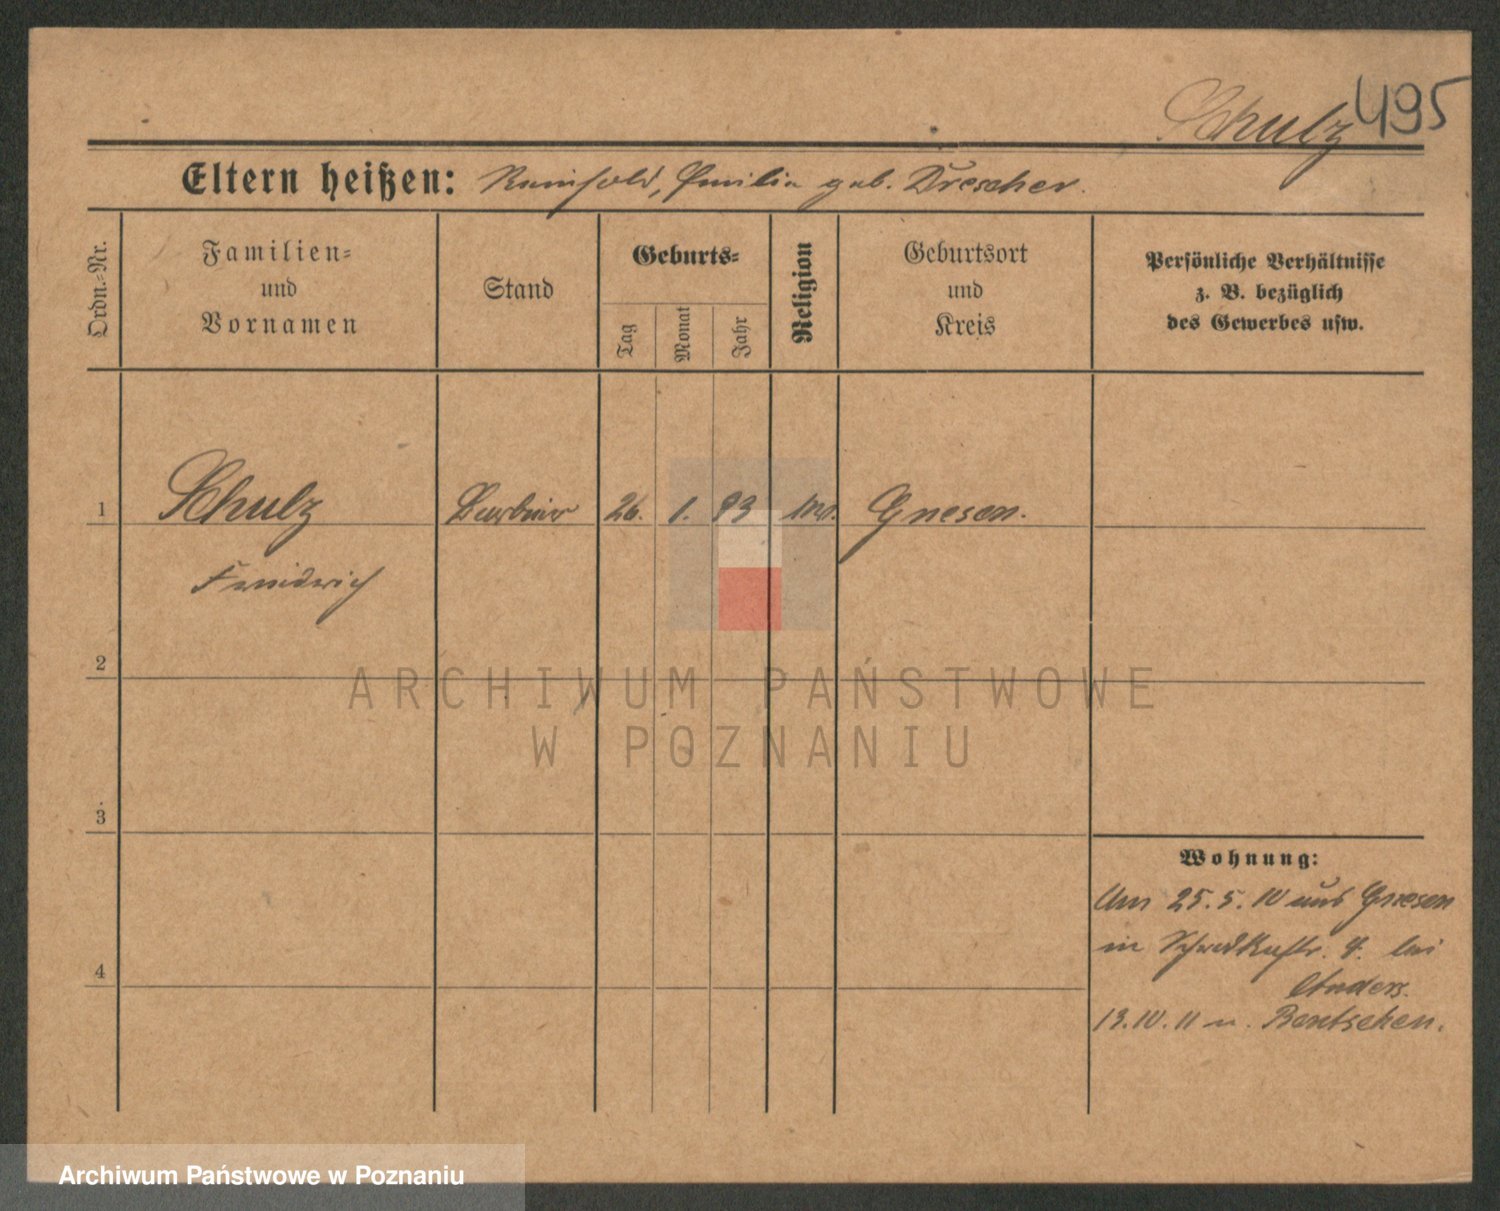 Schulz 495
Eltern heißen: Reinhold, Emilie geb. Drescher.
Ordn.-Nr.
Familien-
und
Vornamen
Stand
Geburts-
Tag
Monat
Jahr
Religion
Geburtsort
und
Kreis
Persönliche Verhältnisse
z. B. bezüglich
des Gewerbes usw.
1 Schulz Barbier 26. 1. 93 Gnesen.
Friedrich
2
3
4
Wohnung:
Am 25. 5. 10 aus Gnesen
in 4. bei
Anders.
13.10.11 n. Bentschen.
ARCHIWUM PAŃSTWOWE
W POZNANIU
Archiwum Państwowe w Poznaniu